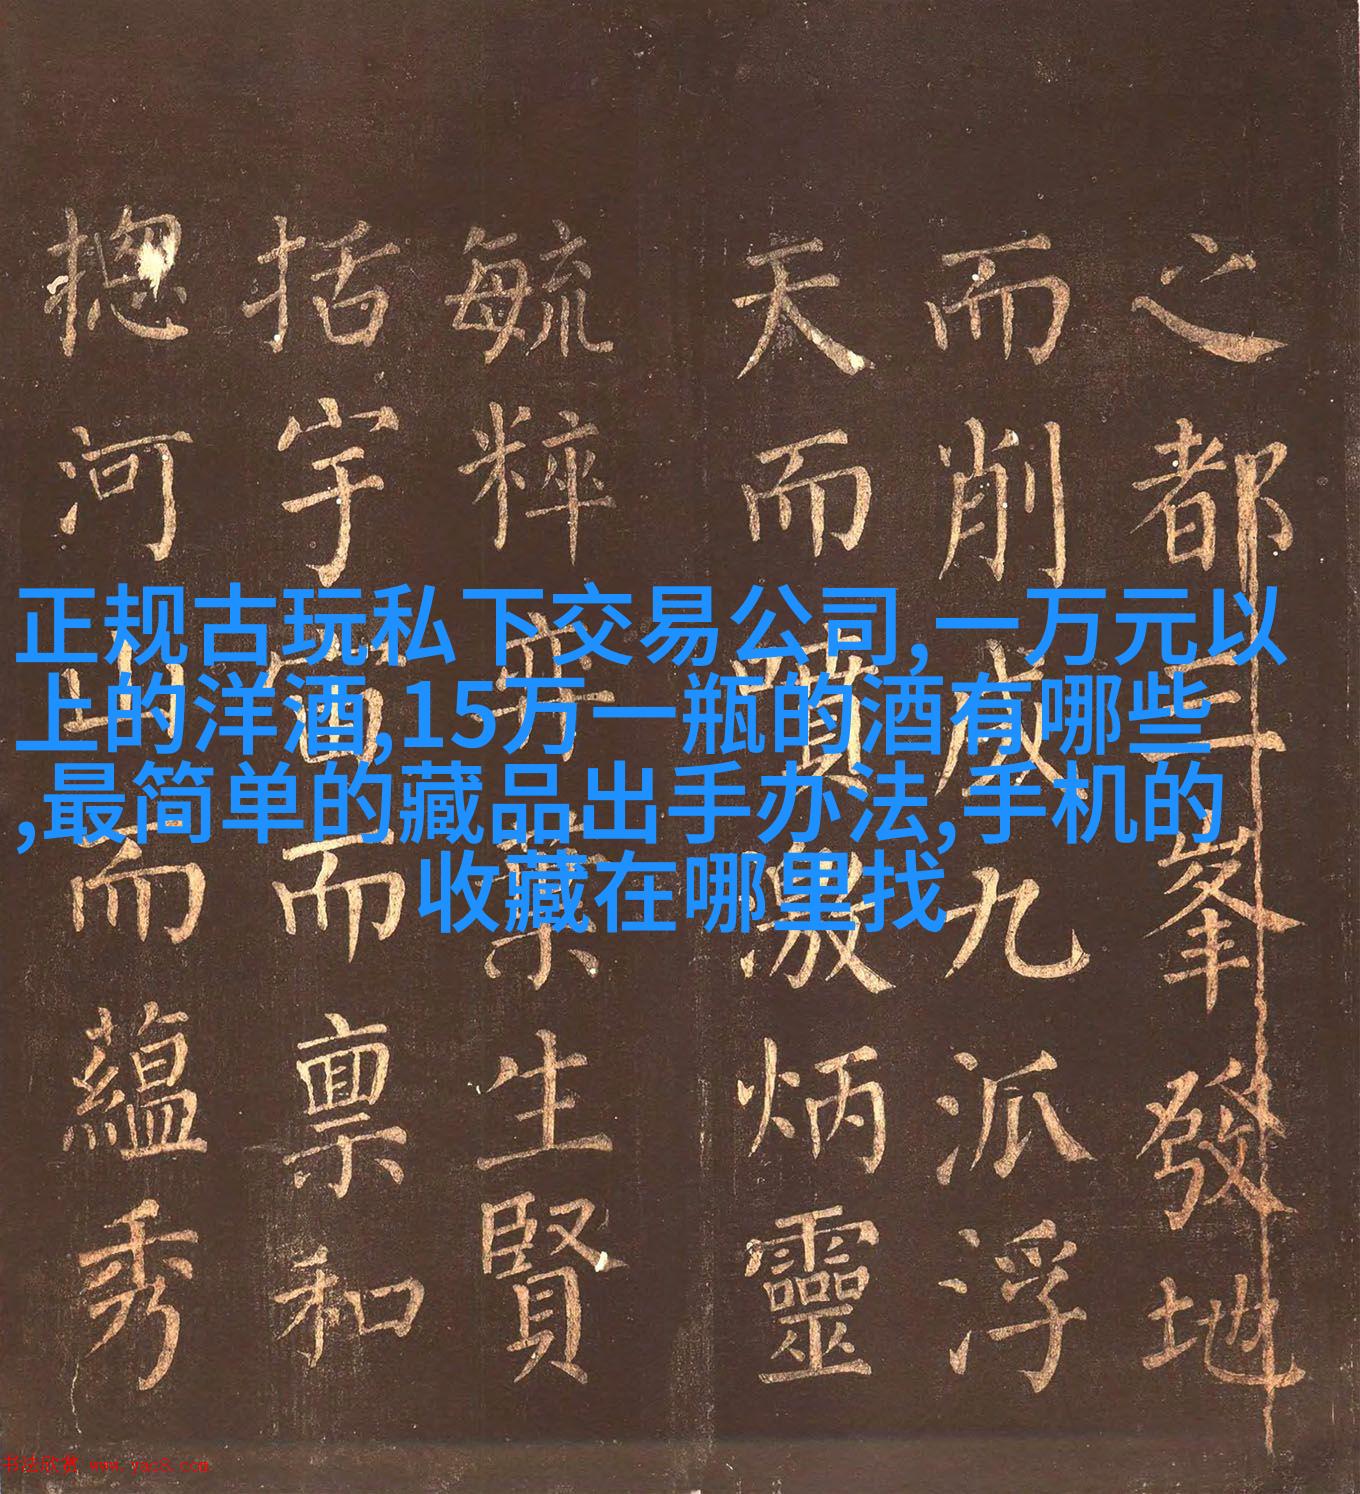 之都三峯發地
而削成九派浮
天而噴激炳靈
毓粹弈葉生賢
括宇宙而禀和
揔河山而蘊秀
正规古玩私下交易公司,一万元以
上的洋酒,15万一瓶的酒有哪些
,最简单的藏品出手办法,手机的
收藏在哪里找
书法欣赏 www.yac8.com